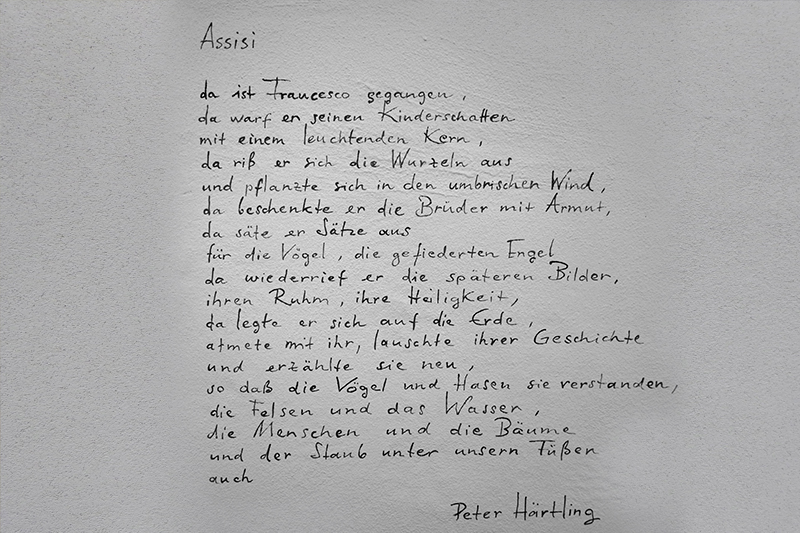 Assisi
da ist Francesco gegangen,
da warf er seinen Kinderschatten
mit einem leuchtenden Kern,
da riß er sich die Wurzeln aus
und pflanzte sich in den umbrischen Wind,
da beschenkte er die Brüder mit Armut,
da säte er Sätze aus
für die Vögel, die gefiederten Engel
da wiederrief er die späteren Bilder,
ihren Ruhm, ihre Heiligkeit,
da legte er sich auf die Erde,
atmete mit ihr, lauschte ihrer Geschichte
und erzählte sie neu,
so daß die Vögel und Hasen sie verstanden,
die Felsen und das Wasser,
die Menschen und die Bäume
und der Staub unter unsern Füßen
auch
Peter Härtling